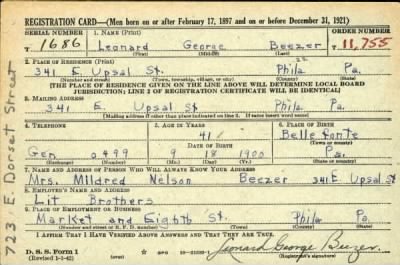 REGISTRATION CARD—(Men born on or after February 17, 1897 and on or before December 31, 1921)
SERIAL NUMBER 1. NAME (Print) ORDER NUMBER
T 1686 Leonard George Beezer T 11,755
(First) (Middle) (Last)
2. PLACE OF RESIDENCE (Print) 22
341 E. Upsal St. Phila Pa.
(Number and street) (Town, township, village, or city) (County) (State)
[THE PLACE OF RESIDENCE GIVEN ON THE LINE ABOVE WILL DETERMINE LOCAL BOARD
JURISDICTION; LINE 2 OF REGISTRATION CERTIFICATE WILL BE IDENTICAL]
3. MAILING ADDRESS
341 E. Upsal St Phila Pa.
[Mailing address if other than place indicated on line 2. If same insert word same]
4. TELEPHONE 5. AGE IN YEARS 6. PLACE OF BIRTH
41 Bellefonte
DATE OF BIRTH (Town or county)
Gen 0499 9 18 1900 Pa.
(Exchange) (Number) (Mo.) (Day) (Yr.) (State or country)
7. NAME AND ADDRESS OF PERSON WHO WILL ALWAYS KNOW YOUR ADDRESS
Mrs. Mildred Nelson Beezer 341 E. Upsal St
8. EMPLOYER'S NAME AND ADDRESS
Lit Brothers
9. PLACE OF EMPLOYMENT OR BUSINESS
Market and Eighth St. Phila Pa.
(Number and street or R. F. D. number) (Town) (County) (State)
I AFFIRM THAT I HAVE VERIFIED ABOVE ANSWERS AND THAT THEY ARE TRUE.
D. S. S. Form 1
(Revised 1-1-42) (over) Leonard George Beezer
(Registrant's signature)
723 E. Dorset Street